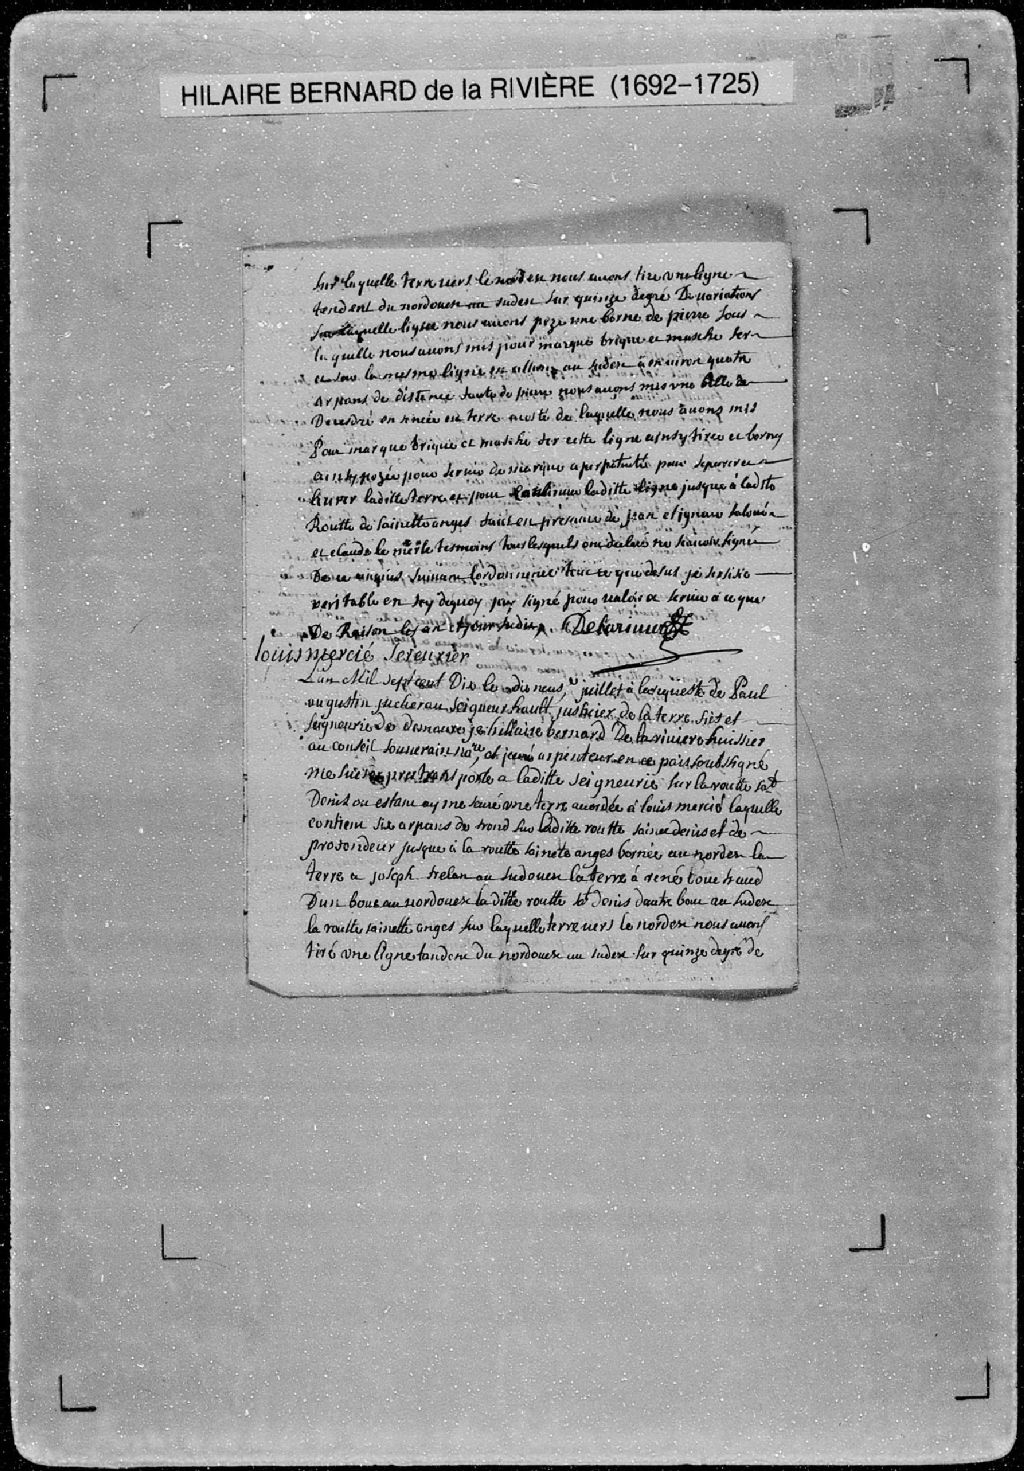 HILAIRE BERNARD de la RIVIÈRE (1692-1725)
sur laquelle terre vers le nordest nous avons tiré une ligne
tendent du nordouest au sudest sur quinze degré De variation
sur laquelle ligne nous avons pozé une borne de pierre sous
laquelle nous avons mis pour marque brique et masche fer
et sur la mesme ligne en allant au sudest à environ quatre
arpans de distance faute de pierre nous avons mis une
De cedre en foncée en terre a costé de laquelle nous avons mis
Pour marque brique et masche fer cette ligne ainsy tirée et bornes
ainsy pozée pour servir de marque a perpetuité pour separer et
livrer laditte terre et pour laditte ligne jusque à laditte
Routte de sainette anges fait en présence de jean et ignace
et claude le merle tesmoins tous lesquels ont declaré ne scavoir signer
De ce enquis suivant l'ordonnance tout ce que desus je sertifie
veritable en foy dequoy jay signé pour valoir et servir à ce que
De Raison les an et jour susdit Delariviere
louis mercié
L'an Mil sept cent Dix le dix neuf juillet à la requeste de Paul
augustin juchereau seigneur hault justicier de la terre fief et
seigneurie de demaure je hillaire bernard De la riviere huissier
au conseil souverain nore et juré arpenteur en ce païs soubsigné
me suis exprès transporté a laditte seigneurie sur la routte st
Denis ou estant ay mesuré une terre accordée à louis mercié laquelle
contient six arpans de frond sur laditte routte sainct denis et de
profondeur jusque à la routte sainete anges bornée au nordest la
terre a joseph au sudouest la terre à rené
Dun bout au nordouest la ditte routte st denis dautre bout au sudest
la routte sainette anges sur laquelle terre vers le nordest nous avons
tiré une ligne tandent du nordouest au sudest sur quinze degré de